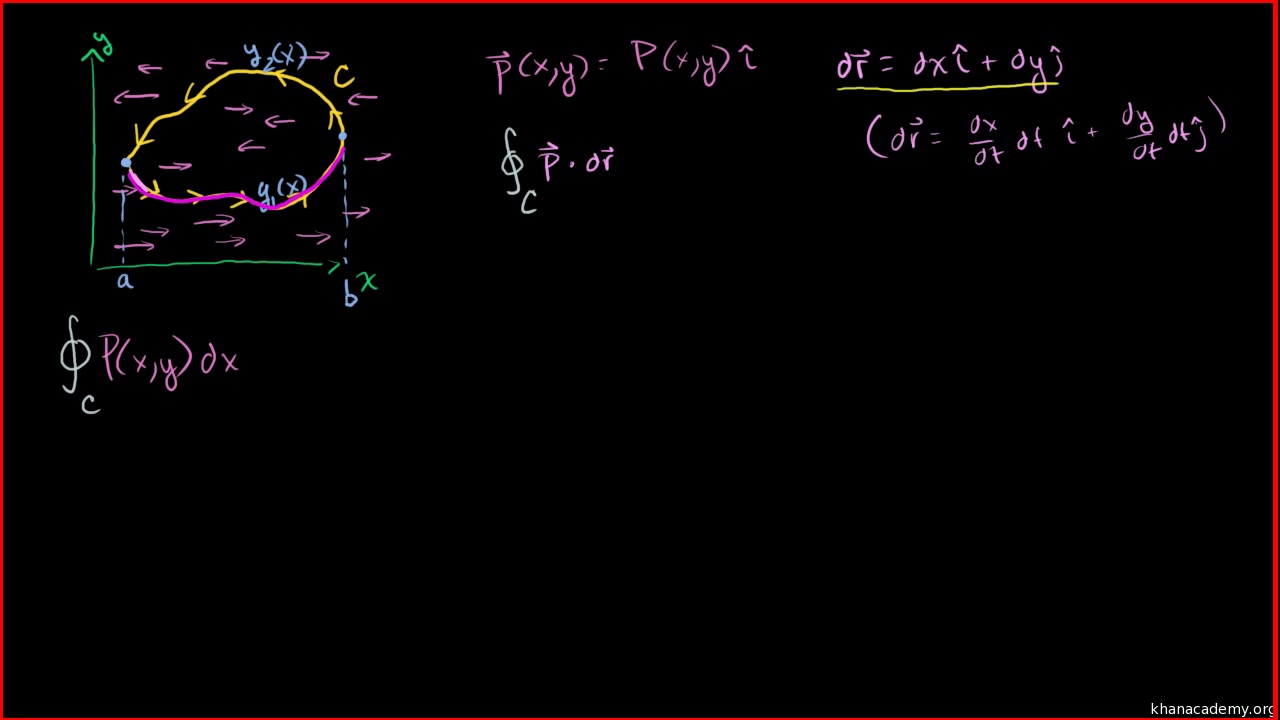 y
y₂(x)
C
y₁(x)
a
b
x
P⃗(x,y) = P(x,y) î
dr⃗ = dx î + dy ĵ
(dr⃗ = dx/dt dt î + dy/dt dt ĵ)
∮_C P⃗ · dr⃗
∮_C P(x,y) dx
khanacademy.org